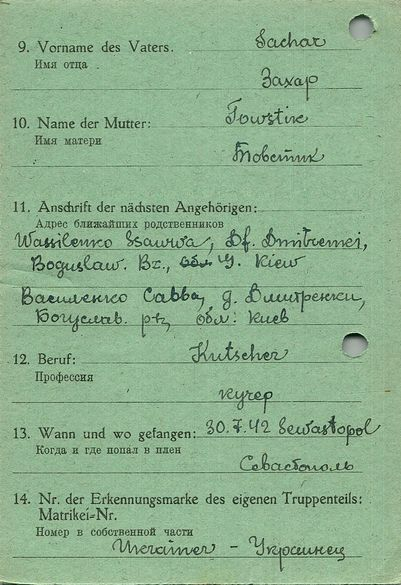 9. Vorname des Vaters. Sachar
Имя отца
Захар
10. Name der Mutter: Towstik
Имя матери
Товстик
11. Anschrift der nächsten Angehörigen:
Адрес ближайших родственников
Wassilenko Ssawwa, Df. Dmitrenki,
Boguslaw. Bz., G. Kiew
Василенко Савва, д. Дмитренки,
Богуслав. р-н, обл: Киев
12. Beruf: Kutscher
Профессия
кучер
13. Wann und wo gefangen: 30.7.42 Sewastopol
Когда и где попал в плен
Севастополь
14. Nr. der Erkennungsmarke des eigenen Truppenteils:
Matrikel-Nr.
Номер в собственной части
Ukrainer - Украинец